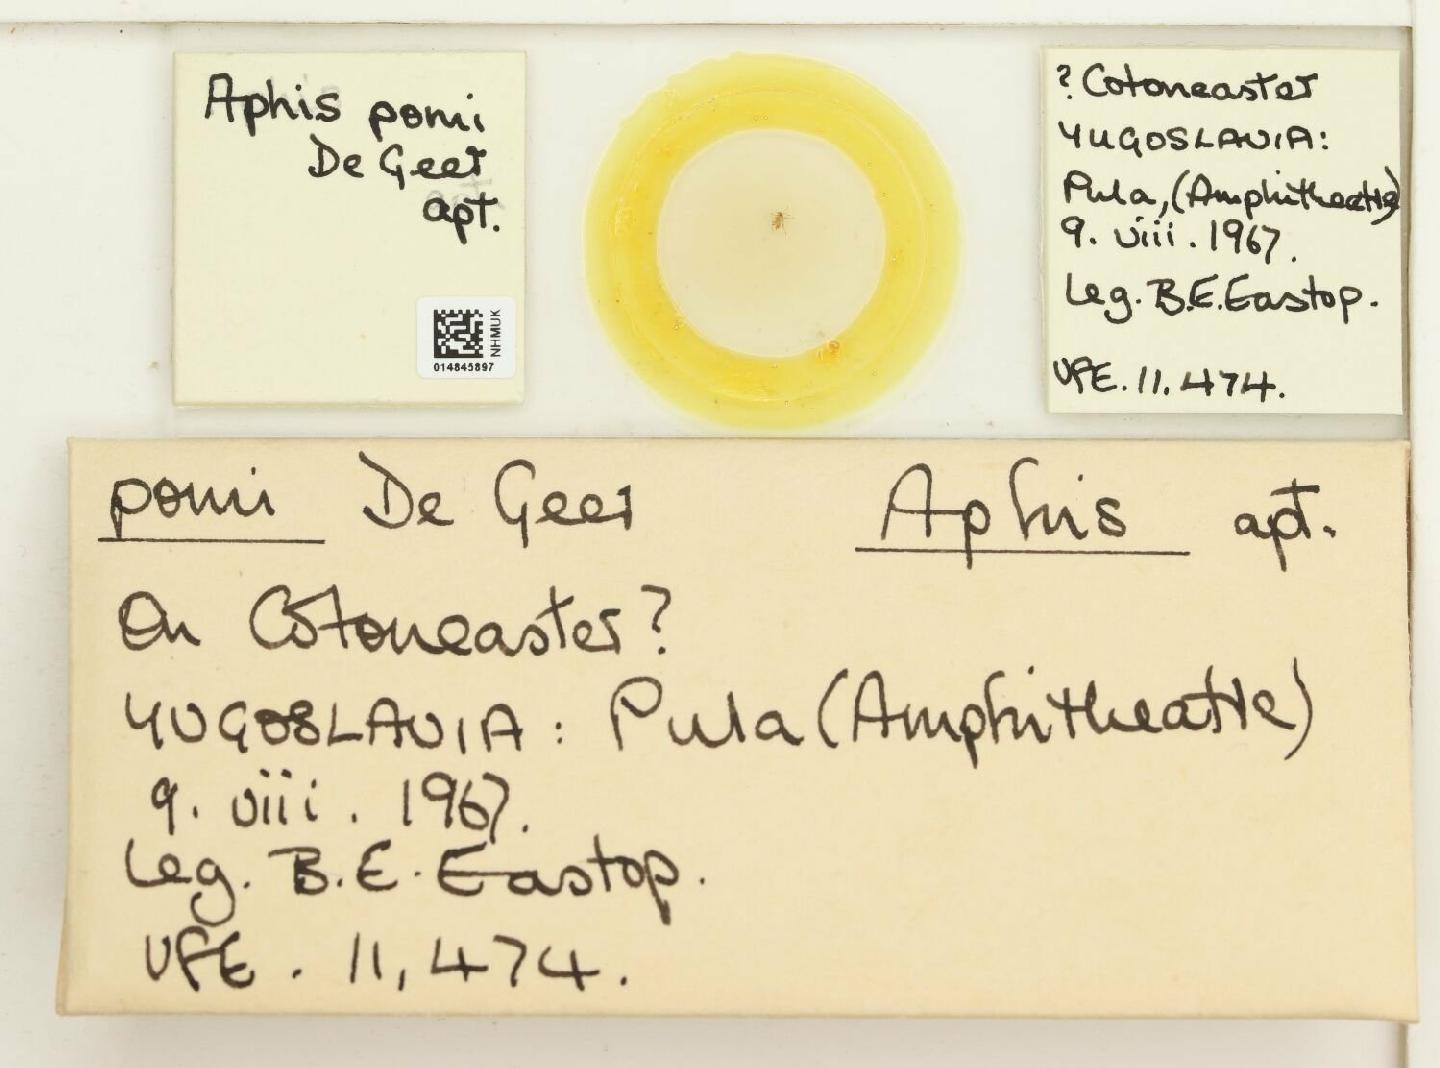 Aphis pomi
De Geer
apt.
NHMUK
014845897
? Cotoneaster
YUGOSLAVIA:
Pula, (Amphitheatre)
9. viii. 1967.
Leg. B.E. Eastop.
VFE. 11,474.
pomi De Geer Aphis apt.
On Cotoneaster?
YUGOSLAVIA: Pula (Amphitheatre)
9. viii. 1967.
Leg. B.E. Eastop.
VFE. 11,474.